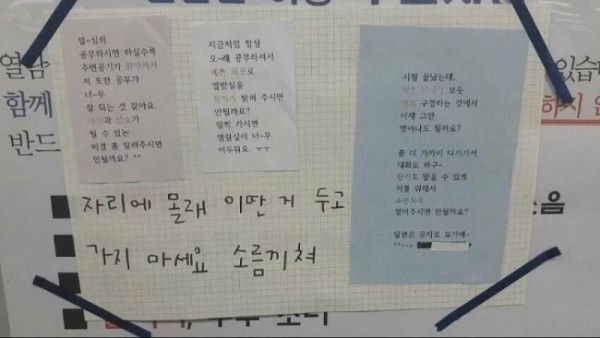 열람
함께
반드
있습
하지 않
음
열~심히
공부하시면 하실수록
주변공기가 맑아져서
저 또한 공부가
너~무
잘 되는 것 같아요.
태양과 산소가
될 수 있는
비결 좀 알려주시면
안될까요? ^^
지금처럼 항상
오~래 공부하셔서
예쁜 외모로
열람실을
환하게 밝혀 주시면
안될까요?
일찍 가시면
열람실이 너~무
어두워요 ㅜㅜ
시험 끝났는데,
보듯
구경하는 것에서
이제 그만
벗어나도 될까요?
좀 더 가까이 다가가서
대화도 하구~
향기도 맡을 수 있게
저를 위해서
열어주시면 안될까요?
답변은 문자로 요기에~
자리에 몰래 이딴 거 두고
가지 마세요 소름끼쳐